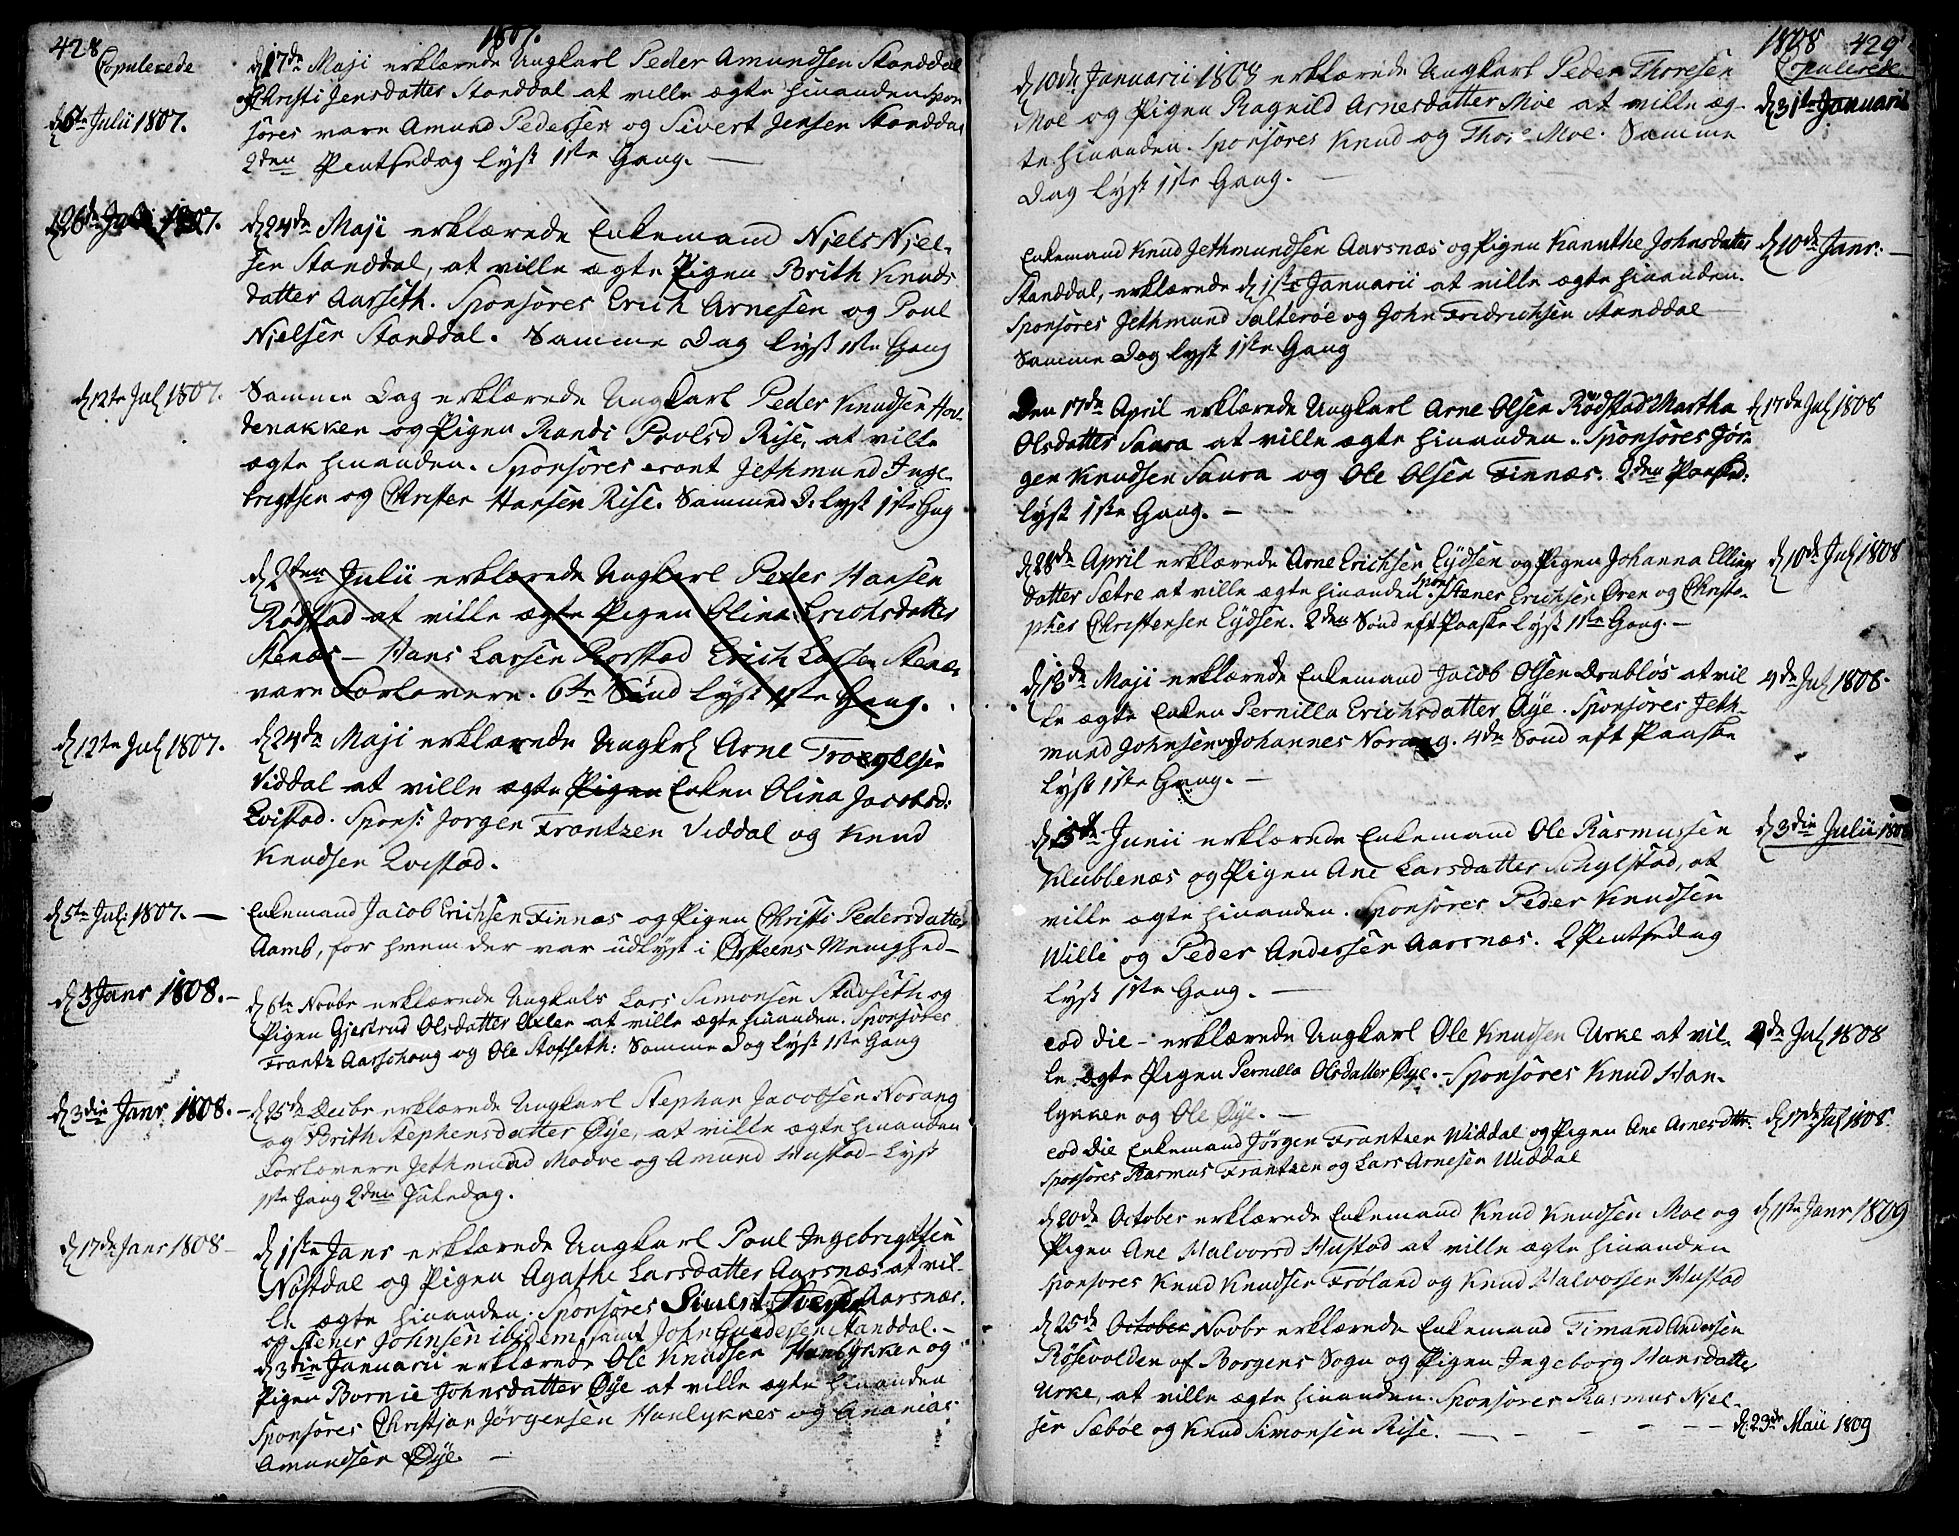 428
1807.
Copulerede
d 17de Maji erklærede Ungkarl Peder Amundsen Standdal
Christi Jensdatter Standdal at ville ægte hinanden Spon
d 5te Julii 1807.
sores vare Amund Pedersen og Sivert Jensen Standdal
2den Pentsedag lyst 1ste Gang. —
d 26de Juli 1807.
d 24de Maji erklærede Enkemand Niels Niel-
sen Standdal, at ville ægte Pigen Brith Knuds
datter Aarseth. Sponsores Erich Arnesen og Poul
Nielsen Standdal. Samme Dag lyst 1ste Gang
d 12te Jul 1807.
Samme Dag erklærede Ungkarl Peder Knudsen Hov-
denakken og Pigen Randi Povlsd Rise, at ville
ægte hinanden. Sponsores erant Jethmund Inge-
brigtsen og Christen Hansen Rise. Sammed D. lyst 1ste Gang
d 2den Julii erklærede Ungkarl Peder Hansen
Rødstad at ville ægte Pigen Olina Erichsdatter
Stenæs — Hans Larsen Rorstad Erich Larsen Stenæs
vare Forlovere. 6te Sønd lyst 1ste Gang.
d 12te Jul 1807.
d 24de Maji erklærede Ungkrl Arne Troeglsen
Viddal at ville ægte Pigen Enken Olina Jacobsd:
Qvistad. Spons: Jorgen Frantzen Viddal og Knud
Knudsen Qvistad.
d 5te Juli 1807. —
Enkemand Jacob Erichsen Finnæs og Pigen Christi Pedersdatter
Aamb, for hvem der var udlyst i Ørsteens Menighed—
d 3 Janr 1808. —
d 6te Novbr erklærede Ungkarls Lars Simonsen Stavseth og
Pigen Gjertrud Olsdatter Axler at ville ægte hinanden. Sponsores
Frantz Aarschoug og Ole Stofseth: Samme Dag lyst 1ste Gang
d 3die Janr: 1808. —
d 25de Decbr erklærede Ungkarl Stephan Jacobsen Norang
og Brith Stephensdatter Øye, at ville ægte hinanden
Forlovere Jethmund Modve og Amund Hustad — Lyst
1ste Gang 2den Juledag.
d 17de Janr 1808 —
d 1ste Janr erklærede Ungkarl Poul Ingebrigtsen
Nøstdal og Pigen Agathe Larsdatter Aarsnæs at vil-
le ægte hinanden. Sponsores Aarsnæs.
og Stener Johnsen ibidem, samt John Standdal. —
d 3die Januarii erklærede Ole Knudsen Hanlykken og
Pigen Bornie Johnsdatter Øye at ville ægte hinanden
Sponsores Christian Jørgensen Hanlykkes og Ananias
Amundsen Øye. —
1808 429
Copulerede
d 10de Januarii 1808 erklærede Ungkarl Peder Thoresen
Moe og Pigen Ragnild Arnesdatter Moe at ville æg-
d 31te Januarii
te hinanden. Sponsores Knud og Thore Moe. Samme
Dag lyst 1ste Gang. —
Enkemand Knud Jethmundsen Aarsnæs og Pigen Kanuthe Johnsdatter
d 10de Janr: —
Standdal, erklærede d 1ste Januarii at ville ægte hinanden.
Sponsores Jethmund Salterøe og John Fridrichsen Standdal —
Samme Dag lyst 1ste Gang
Den 17de April erklærede Ungkarl Arne Olsen Rødstad Martha
d 17de Jul 1808
Olsdatter Saura at ville ægte hinanden. Sponsores Jør-
gen Knudsen Saura og Ole Olsen Finnæs. 2den Paasked:
lyst 1ste Gang. —
d 28de April erklærede Arne Erichsen Eydsen og Pigen Johanna Ellings
d 10de Jul 1808
datter Sætre at ville ægte hinanden. Spons Stener Erichsen Øren og Christo-
pher Christensen Eydsen. 2den Sønd eft Paaske lyst 1ste Gang. —
d 18de Maji erklærede Enkemand Jacob Olsen Drabløs at vil
4de Jul 1808.
le ægte Enken Pernilla Erichsdatter Øye. Sponsores Jeth-
mund Johnsen og Johannes Norang. 4de Sønd eft Paaske
lyst 1ste Gang. —
d 5te Junii erklærede Enkemand Ole Rasmussen
d 3die Julii 1808
Klubbenæs og Pigen Ane Larsdatter, at
ville ægte hinanden. Sponsores Peder Knudsen
Willi og Peder Andersen Aarsnæs. 2 Pentsedag
lyst 1ste Gang. —
eod die — erklærede Ungkarl Ole Knudsen Urke at vil-
de Jul 1808
le ægte Pigen Pernilla Olsdatter Øye. — Sponsores Knud Han-
lykken og Ole Øye. —
eod Die Enkemand Jørgen Frantzen Widdal og Pigen Ane Arnesdttr.
d 17de Jul 1808.
Sponsores Rasmus Frantzen og Lars Arnesen Widdal
d 20de October erklærede Enkemand Knud Knudsen Moe og
d 1ste Janr 1809
Pigen Ane Halvorsd Hustad at ville ægte hinanden
Sponsores Knud Knudsen Frøland og Knud Halvorsen Hustad
d 25de October Novbr erklærede Enkemand Timand Andersen
Røsevolden af Borgens Sogn og Pigen Ingeborg Hansdatter
Urke, at ville ægte hinanden. Sponsores Rasmus Niel-
sen Sæbøe og Knud Simonsen Rise. —
d. 23de Maii 1809